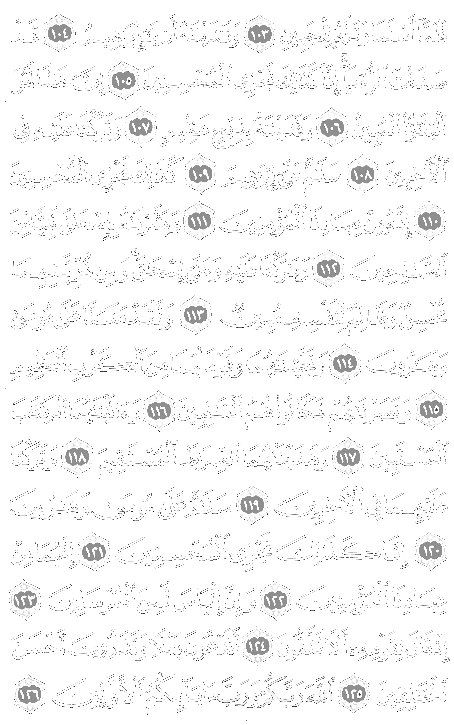 فَلَمَّا أَسْلَمَا وَتَلَّهُ لِلْجَبِينِ ١٠٣ وَنَادَيْنَاهُ أَنْ يَا إِبْرَاهِيمُ ١٠٤ قَدْ
صَدَّقْتَ الرُّؤْيَا إِنَّا كَذَلِكَ نَجْزِي الْمُحْسِنِينَ ١٠٥ إِنَّ هَذَا لَهُوَ
الْبَلَاءُ الْمُبِينُ ١٠٦ وَفَدَيْنَاهُ بِذِبْحٍ عَظِيمٍ ١٠٧ وَتَرَكْنَا عَلَيْهِ فِي
الْآخِرِينَ ١٠٨ سَلَامٌ عَلَى إِبْرَاهِيمَ ١٠٩ كَذَلِكَ نَجْزِي الْمُحْسِنِينَ
١١٠ إِنَّهُ مِنْ عِبَادِنَا الْمُؤْمِنِينَ ١١١ وَبَشَّرْنَاهُ بِإِسْحَاقَ نَبِيًّا مِنَ
الصَّالِحِينَ ١١٢ وَبَارَكْنَا عَلَيْهِ وَعَلَى إِسْحَاقَ وَمِنْ ذُرِّيَّتِهِمَا
مُحْسِنٌ وَظَالِمٌ لِنَفْسِهِ مُبِينٌ ١١٣ وَلَقَدْ مَنَنَّا عَلَى مُوسَى
وَهَارُونَ ١١٤ وَنَجَّيْنَاهُمَا وَقَوْمَهُمَا مِنَ الْكَرْبِ الْعَظِيمِ
١١٥ وَنَصَرْنَاهُمْ فَكَانُوا هُمُ الْغَالِبِينَ ١١٦ وَآتَيْنَاهُمَا الْكِتَابَ
الْمُسْتَبِينَ ١١٧ وَهَدَيْنَاهُمَا الصِّرَاطَ الْمُسْتَقِيمَ ١١٨ وَتَرَكْنَا
عَلَيْهِمَا فِي الْآخِرِينَ ١١٩ سَلَامٌ عَلَى مُوسَى وَهَارُونَ
١٢٠ إِنَّا كَذَلِكَ نَجْزِي الْمُحْسِنِينَ ١٢١ إِنَّهُمَا مِنْ
عِبَادِنَا الْمُؤْمِنِينَ ١٢٢ وَإِنَّ إِلْيَاسَ لَمِنَ الْمُرْسَلِينَ ١٢٣
إِذْ قَالَ لِقَوْمِهِ أَلَا تَتَّقُونَ ١٢٤ أَتَدْعُونَ بَعْلًا وَتَذَرُونَ أَحْسَنَ
الْخَالِقِينَ ١٢٥ اللَّهَ رَبَّكُمْ وَرَبَّ آبَائِكُمُ الْأَوَّلِينَ ١٢٦